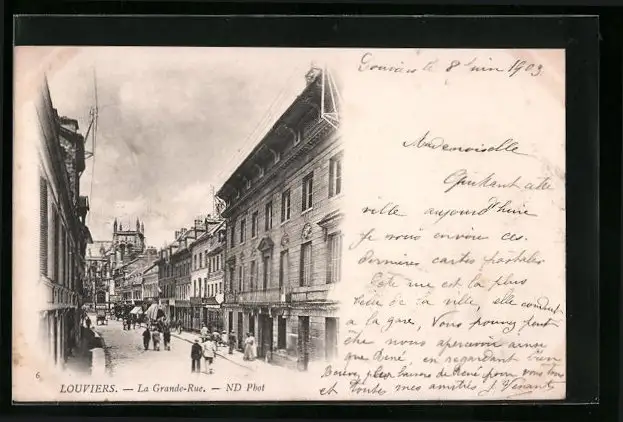 Louviers le 8 Juin 1903
Mademoiselle
Quittant cette
ville aujourd'hui
je vous envoie ces
dernières cartes postales
Cette rue est la plus
belle de la ville, elle conduit
à la gare, Vous pouvez peut
être nous apercevoir ainsi
que René, en regardant bien
Bons baisers de René pour vous tous
et toutes mes amitiés J. Venant
6
LOUVIERS. — La Grande-Rue. — ND Phot